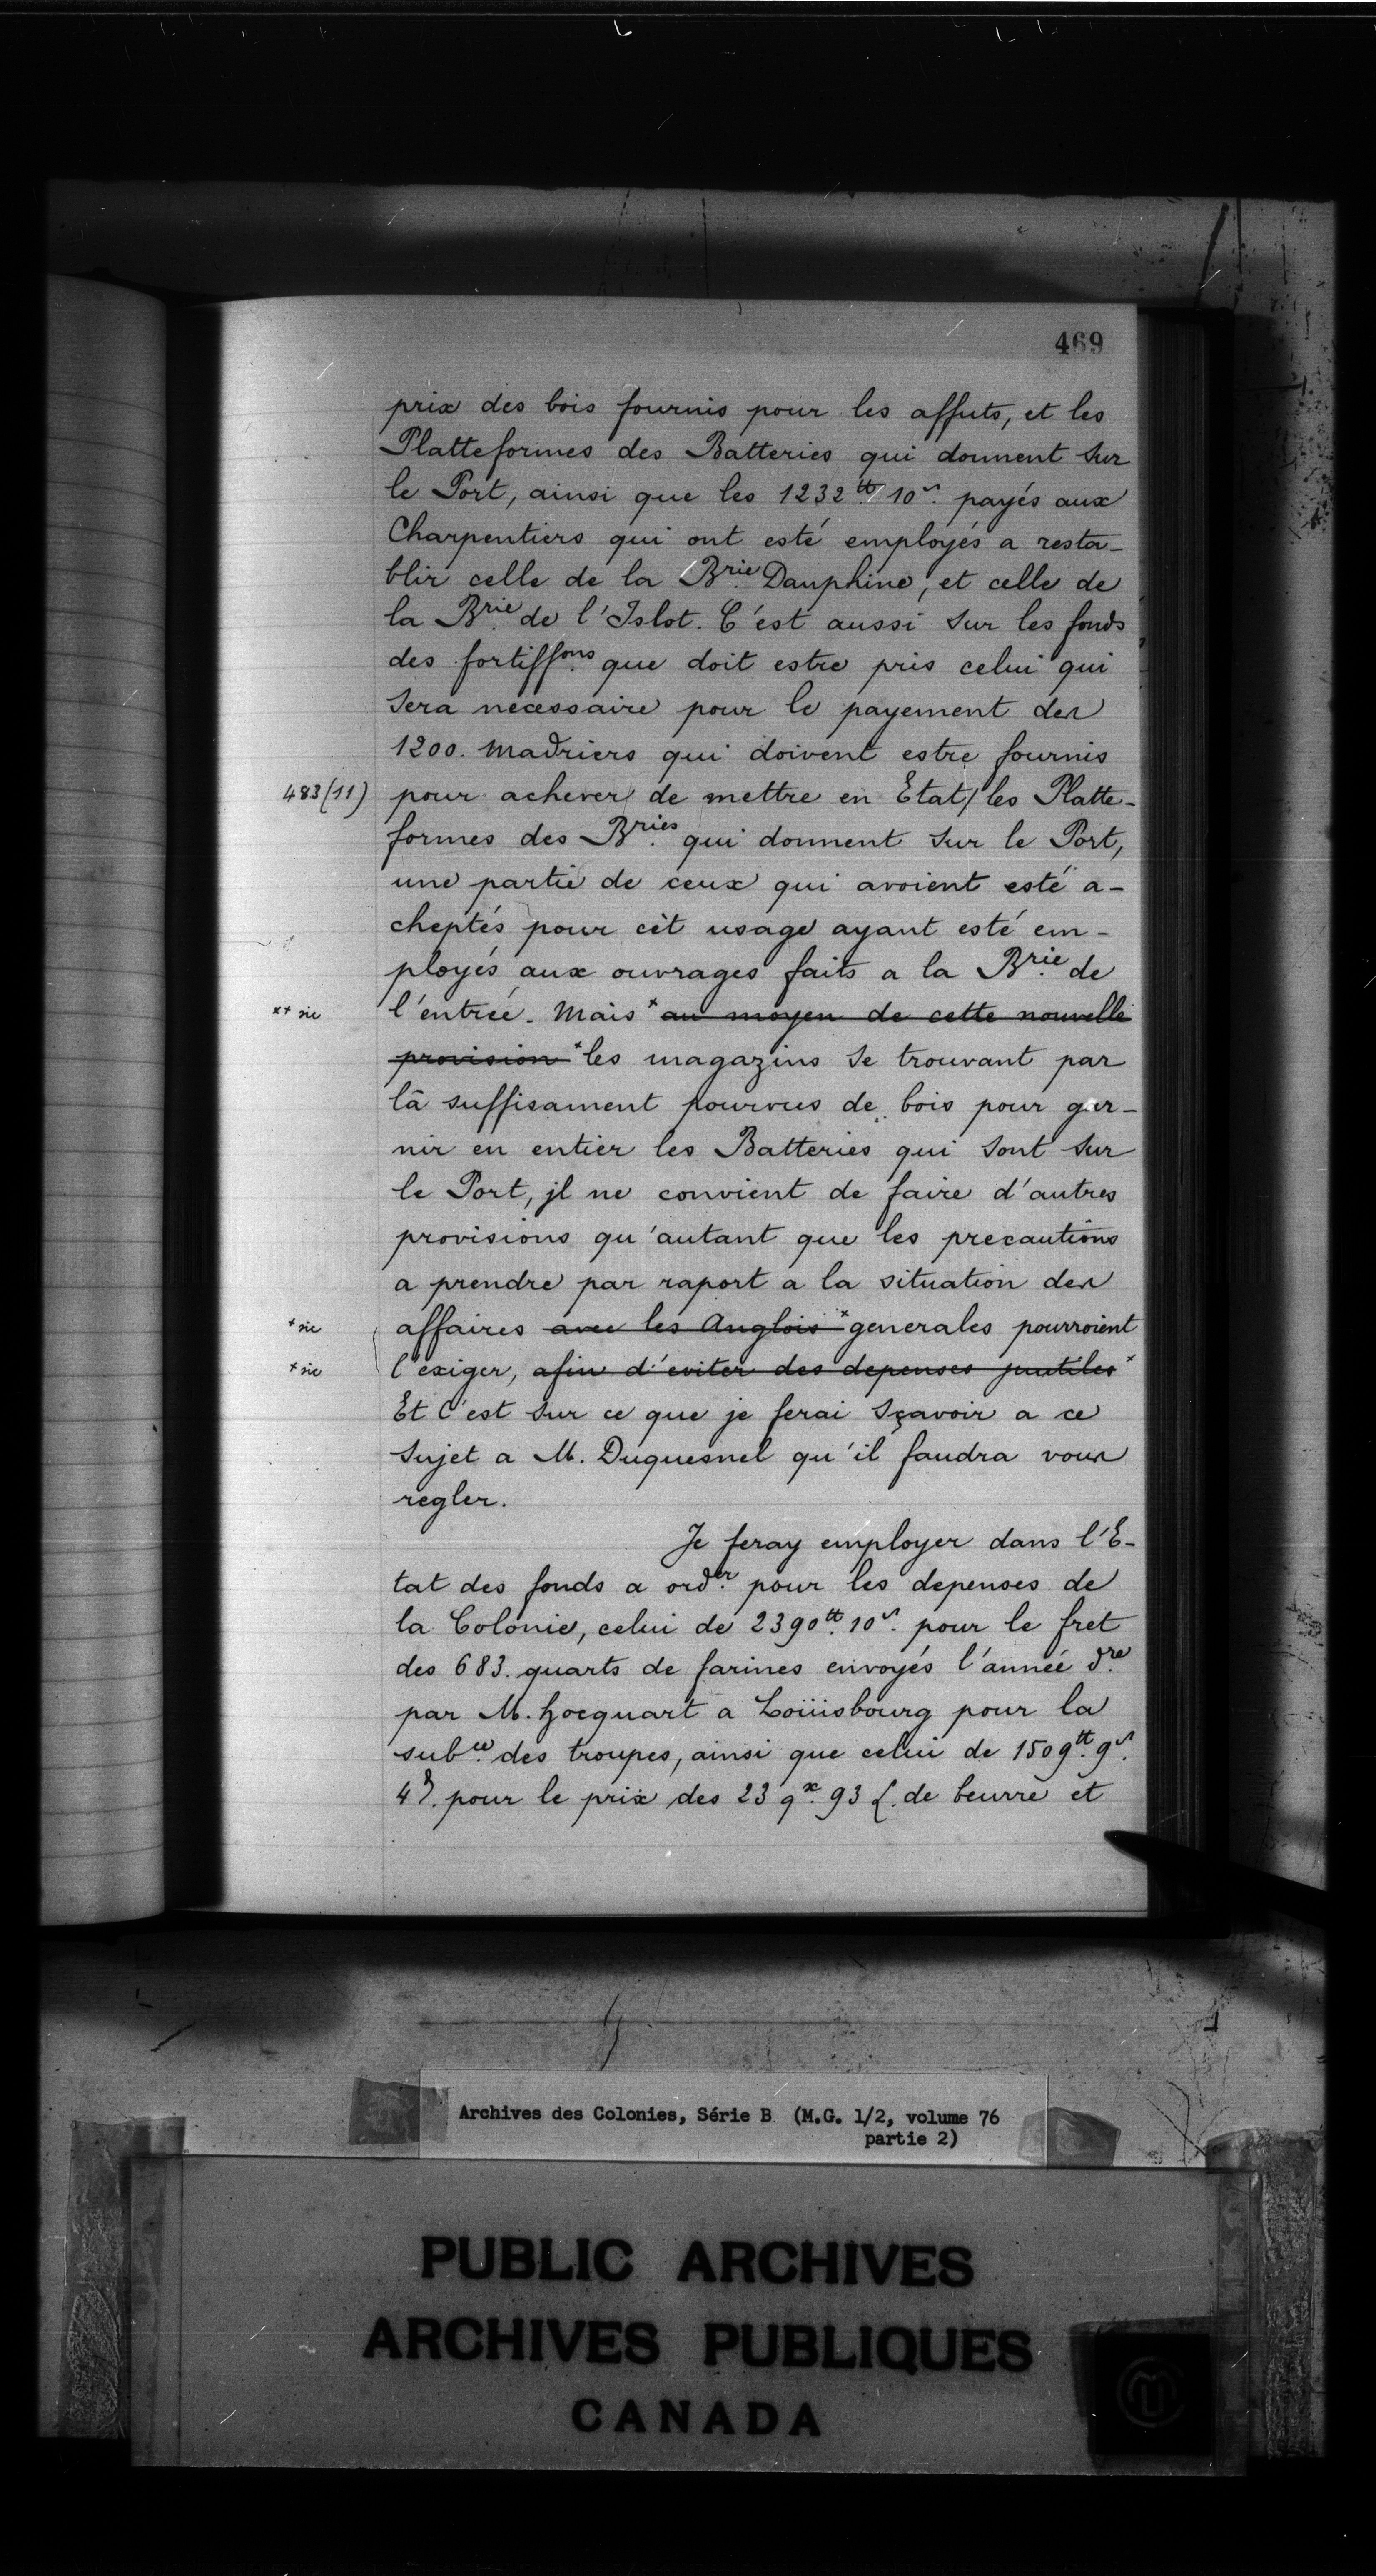 469
prix des bois fournis pour les affuts, et les
Platteformes des Batteries qui donnent sur
le Port, ainsi que les 1232 tt 10 s. payés aux
Charpentiers qui ont esté employés a resta-
blir celle de la Brie Dauphine, et celle de
la Brie de l'Islot. C'est aussi sur les fonds
des fortiffons que doit estre pris celui qui
sera necessaire pour le payement des
1200. madriers qui doivent estre fournis
483 (11) pour achever de mettre en Etat/ les Platte-
formes des Bries qui donnent sur le Port,
une partie de ceux qui avoient esté a-
cheptés pour cèt usage ayant esté em-
ployés aux ouvrages faits a la Brie de
x+ sic l'entrée. Mais x au moyen de cette nouvelle
provision x les magazins se trouvant par
là suffisament pourvus de bois pour gar-
nir en entier les Batteries qui sont sur
le Port, jl ne convient de faire d'autres
provisions qu'autant que les precautions
a prendre par raport a la situation des
+ sic affaires avec les Anglois x generales pourroient
+ sic l'exiger, afin d'eviter des depenses jnutiles x
Et C'est sur ce que je ferai sçavoir a ce
sujet a M. Duquesnel qu'il faudra vous
regler.
Je feray employer dans l'E-
tat des fonds a ordr. pour les depenses de
la Colonie, celui de 2390 tt. 10 s. pour le fret
des 683. quarts de farines envoyés l'année dre
par M. hocquart a Loüisbourg pour la
subce des troupes, ainsi que celui de 1509 tt. 9 s.
4 d. pour le prix des 23 qx. 93 l. de beurre et
Archives des Colonies, Série B (M.G. 1/2, volume 76
partie 2)
PUBLIC ARCHIVES
ARCHIVES PUBLIQUES
CANADA